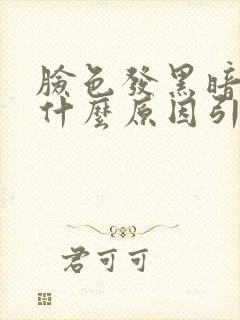 臉色發黑暗
什麼原因引
君可可